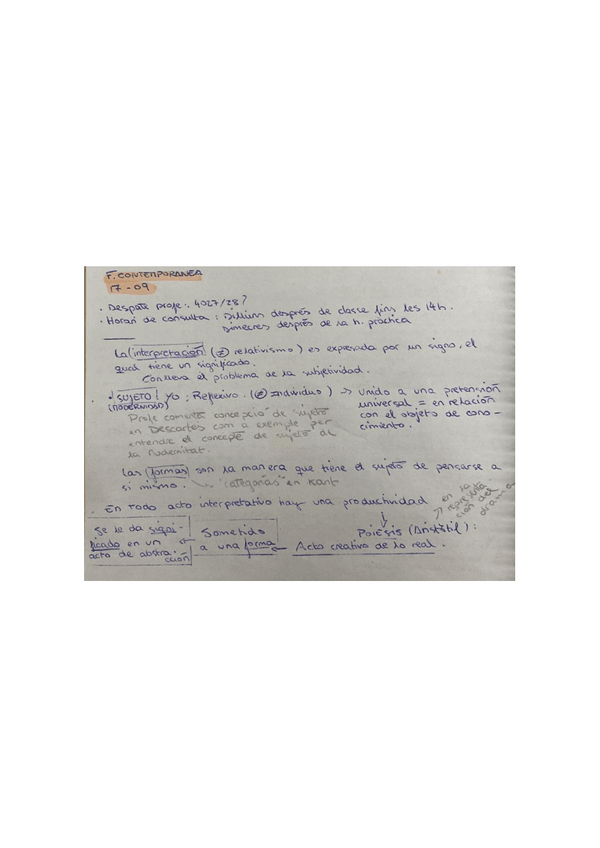 F. CONTEMPORANEA
17-09
· Despatx profe: 4027/28?
· Horari de consulta: Dilluns després de classe fins les 14h.
Dimecres després de la h. pràctica
La interpretación (≠ relativismo) es expresada por un signo, el
qual tiene un significado.
Conlleva el problema de la subjetividad.
· SUJETO / yo: Reflexivo. (≠ Individuo) → Unido a una pretensión
(MODERNIDAD)
universal = en relación
con el objeto de cono-
cimiento.
Profe comenta concepció de sujeto
en Descartes com a exemple per
entendre el concepte de sujeto de
la Modernitat.
Las formas son la manera que tiene el sujeto de pensarse a
sí mismo. → "categorías" en Kant
· En todo acto interpretativo hay una productividad
Poiesis (Aristótil):
→ en la
representa
ción del
drama
Acto creativo de lo real.
Sometido
a una forma
Se le da signi-
ficado en un
acto de abstra-
cción